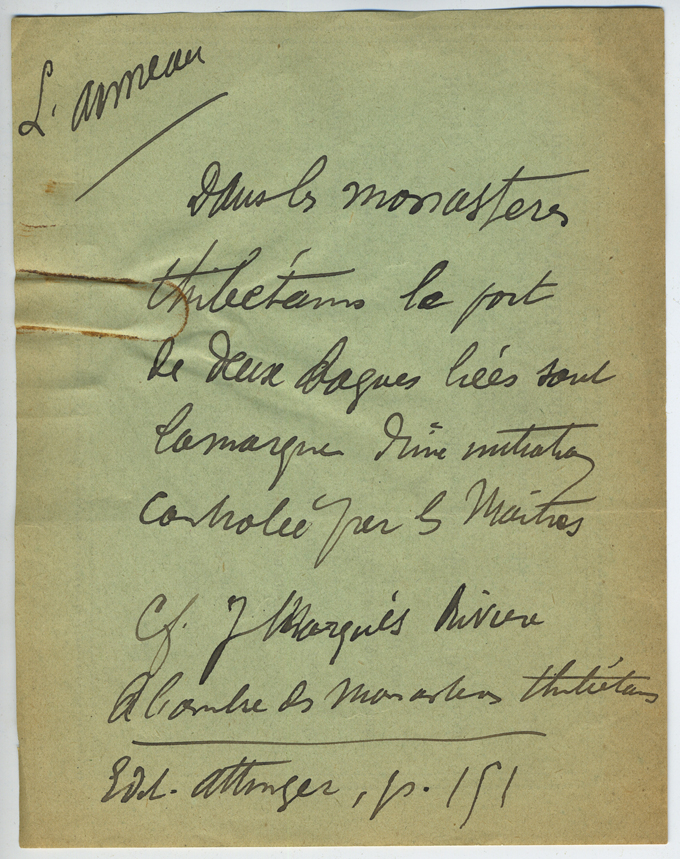 L'anneau
Dans les monastères
thibétains le port
de deux bagues liées sont
la marque d'une initiation
controlée par les Maîtres
Cf. J Marquès Rivière
A l'ombre des Monastères thibétains
Edit. Attinger, p. 151